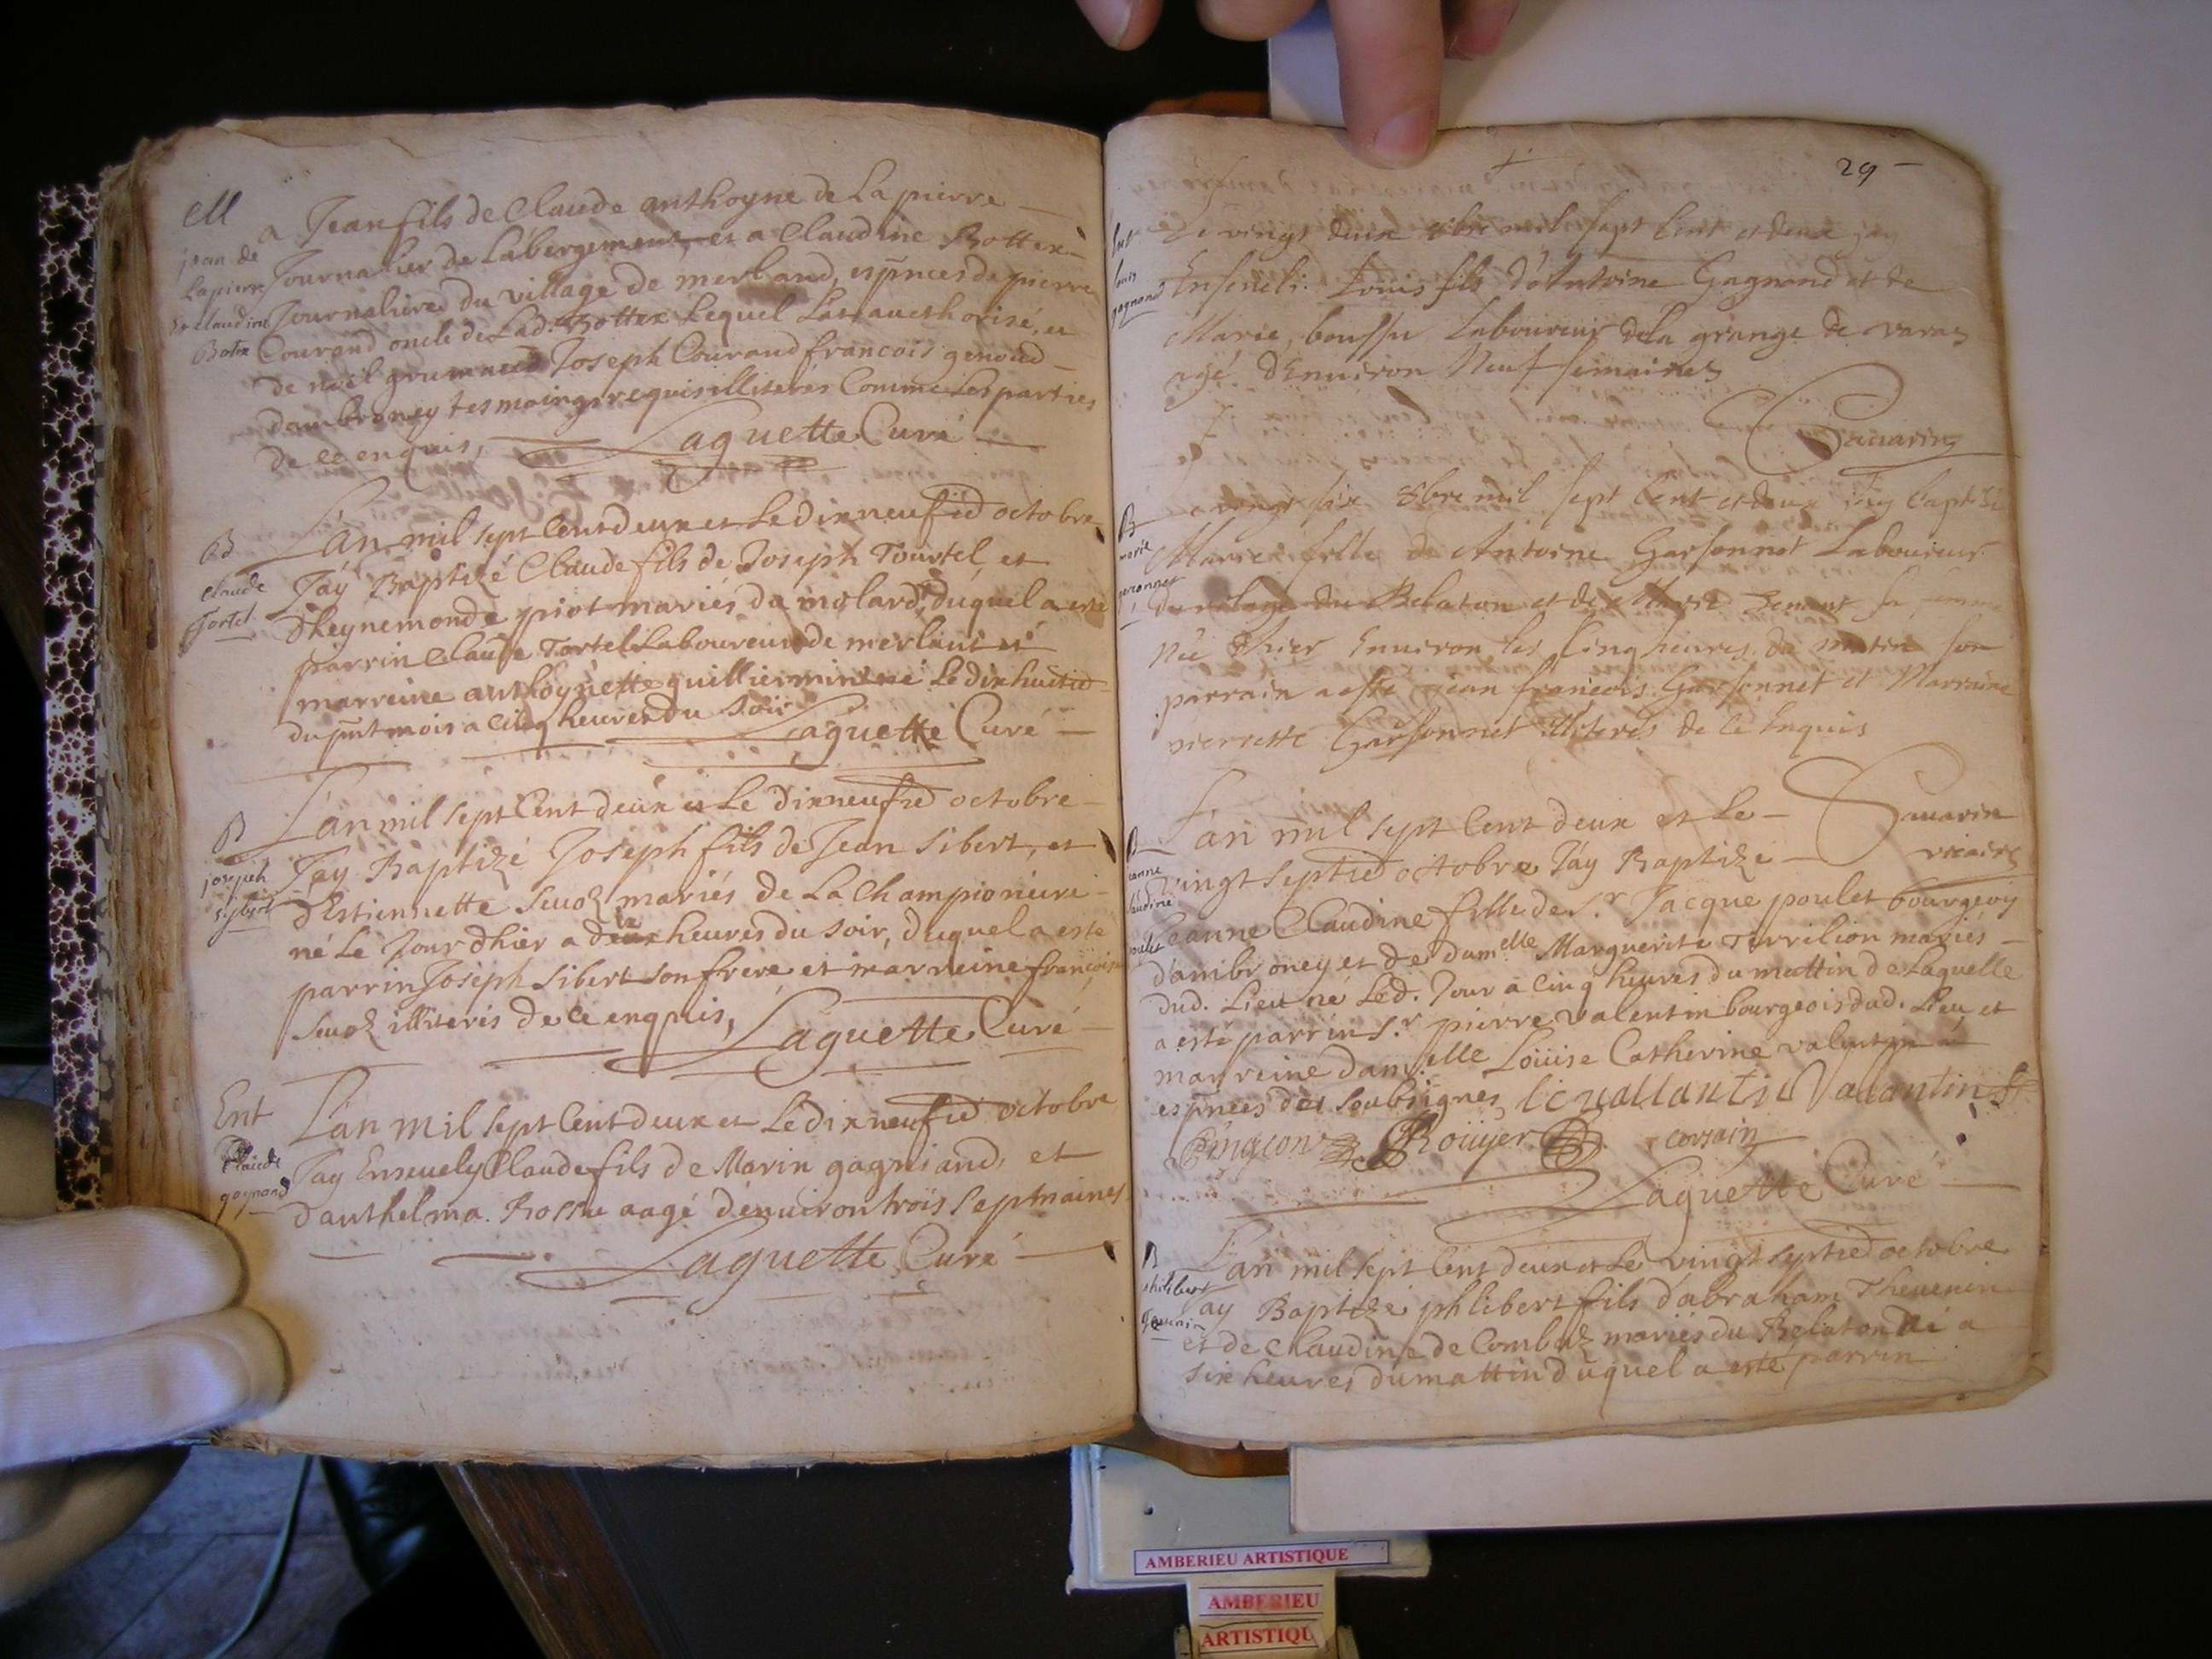 M
jean de
Lapierre
& claudine
Botex
a Jean fils de Claude anthoyne de La pierre
Journalier de Labergement, et a Claudine Bottex
Journaliere du village de merland, espnces de pierre
Courand oncle de Lad. Bottex Lequel Lat aucthorisé, et
de noel grumaud Joseph Couraud francois genoud
dambroney tesmoings requis illiterés Comme Les parties
de ce enquis,
Laguette Curé
B
claude
Tortel
L'an mil sept Cent deux et Le dixneufie octobre
J'ay Baptizé Claude fils de Joseph Tourtel, et
dheynemonde piot mariés du molard, duquel a esté
parrin Claude Tortel Laboureur de merlant et
marreine anthoynette guilliermin né Le dixhuitie
du pnt mois a cinq heures du soir
Laguette Curé
B
joseph
sybert
L'an mil sept Cent deux et Le dixneufie octobre
J'ay Baptizé Joseph fils de Jean Sibert, et
d'Estiennette Sevoz mariés de La Championiere
né Le Jour dhier a heures du soir, duquel a esté
parrin Joseph Sibert son frere et marreine françoise
Sevoz illiteris de ce enquis,
Laguette Curé
Ent
Claude
gagnand
L'an mil sept Cent deux et Le dixneufie octobre
J'ay Enseuely Claude fils de Marin gagniand, et
d'anthelma. Bossu aagé d'enuiron trois septmaines
Laguette Curé
29
Ent
louis
gagnand
Le vingt deux 8bre mil sept Cent et deux jay
Enseueli Louis fils d'Antoine Gagnand et de
Marie, boussu Laboureur dela grange de varas
agé d'Enuiron Neuf semaines
Sauarin
B
marie
garconnet
vingt six 8bre mil sept Cent et deux iay baptizé
Marie fille de Antoine Garsonnet Laboureur
du vilage du Belaton et de Marie sa femme
Née Hier Enuiron les Cinq heures du matin son
parrain a esté jean francois Garsonnet et Marraine
pierrette Garsonnet illiterés de Ce Enquis
Sauarin
vicaire
B
jeanne
claudine
poulet
L'an mil sept Cent deux et Le
vingt septie octobre J'ay Baptize
Jeanne Claudine fille de Sr. Jacque poulet bourgeois
d'ambroney et de damelle Marguerite Terrilion mariés
dud. Lieu né Led. Jour à cinq heures du mattin de Laquelle
a esté parrin Sr. pierre valentin bourgeois dud. Lieu, et
marreine damelle Loüise Catherine valentin
espnces des soubsignes, Valantin
Pingeon Roüyer corsain
Laguette Curé
B
philibert
Teuenin
L'an mil sept Cent deux et Le vingt septie octobre
J'ay Baptizé phlibert fils d'abraham Theuenin
et de Claudine de Combaz mariés du Belaton né a
six heures du mattin duquel a esté parrin
AMBERIEU ARTISTIQUE
AMBERIEU
ARTISTIQU